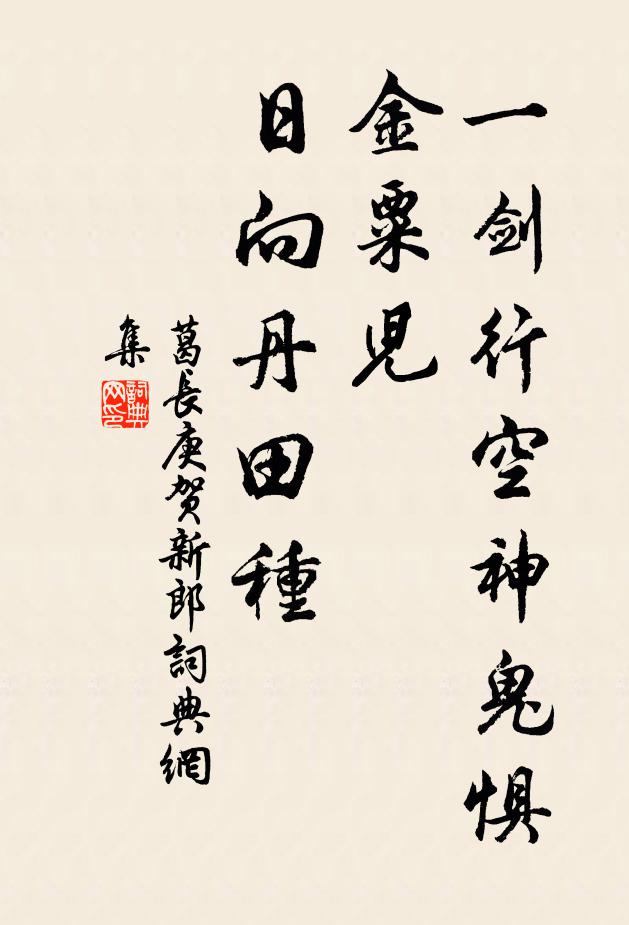 一剑行空神鬼惧
金粟児
日向丹田種
葛長庚贺新郎詞典網
集
詞典
网印